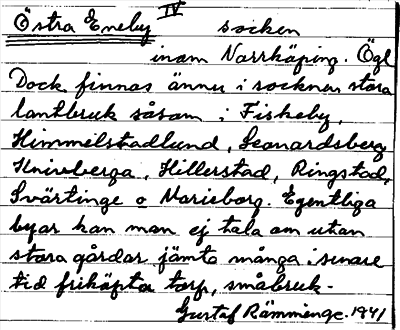 IV
Östra Eneby socken
inom Norrköping. Ögl
Dock finnas ännu i socknen stora
lantbruk såsom i Fiskeby,
Himmelstadlund, Leonardsberg
Knivberga, Hillerstad, Ringstad,
Svärtinge o Marieborg. Egentliga
byar kan man ej tala om utan
stora gårdar jämte många senare
tid friköpta torp, småbruk.
Gustaf Rämminge. 1941